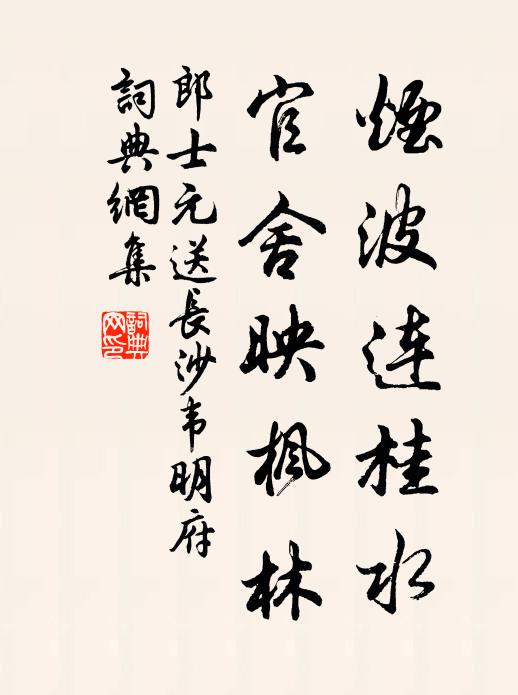 煙波连桂水
官舍映枫林
郎士元送長沙韦明府
詞典網集
詞典网印